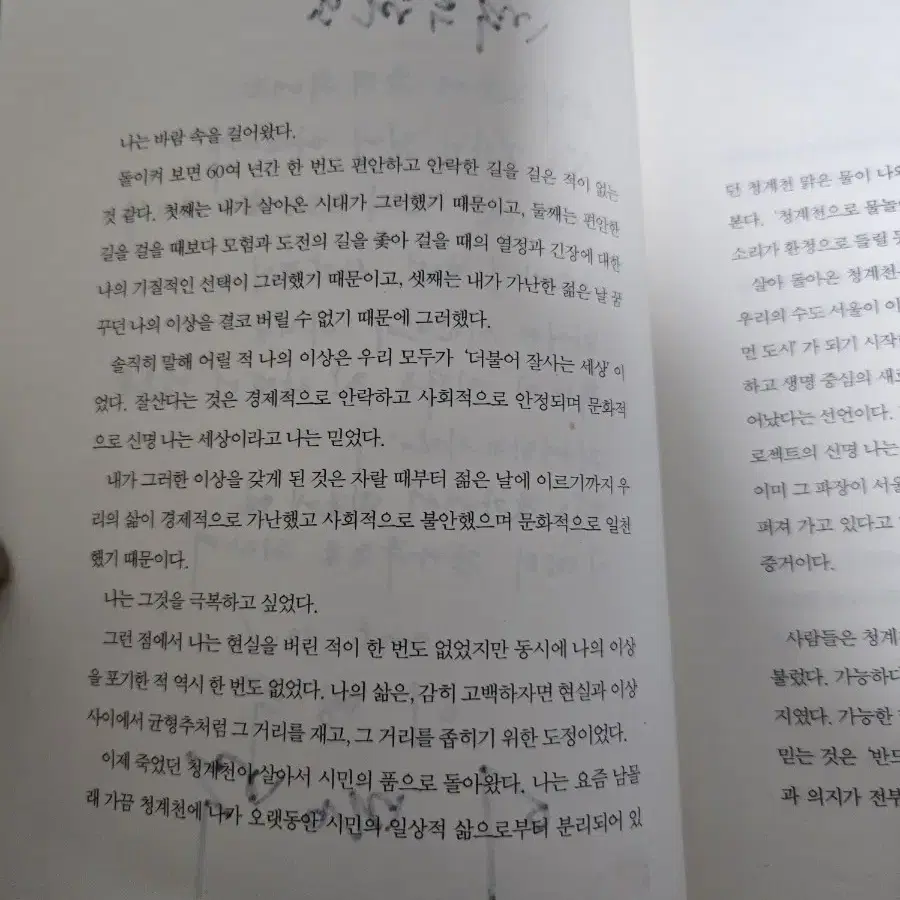 나는 바람 속을 걸어왔다.
돌이켜 보면 60여 년간 한 번도 편안하고 안락한 길을 걸은 적이 없는
것 같다. 첫째는 내가 살아온 시대가 그러했기 때문이고, 둘째는 편안한
길을 걸을 때보다 모험과 도전의 길을 좇아 걸을 때의 열정과 긴장에 대한
나의 기질적인 선택이 그러했기 때문이고, 셋째는 내가 가난한 젊은 날 꿈
꾸던 나의 이상을 결코 버릴 수 없기 때문에 그러했다.
솔직히 말해 어릴 적 나의 이상은 우리 모두가 '더불어 잘사는 세상'이
었다. 잘산다는 것은 경제적으로 안락하고 사회적으로 안정되며 문화적
으로 신명 나는 세상이라고 나는 믿었다.
내가 그러한 이상을 갖게 된 것은 자랄 때부터 젊은 날에 이르기까지 우
리의 삶이 경제적으로 가난했고 사회적으로 불안했으며 문화적으로 일천
했기 때문이다.
나는 그것을 극복하고 싶었다.
그런 점에서 나는 현실을 버린 적이 한 번도 없었지만 동시에 나의 이상
을 포기한 적 역시 한 번도 없었다. 나의 삶은, 감히 고백하자면 현실과 이상
사이에서 균형추처럼 그 거리를 재고, 그 거리를 좁히기 위한 도정이었다.
이제 죽었던 청계천이 살아서 시민의 품으로 돌아왔다. 나는 요즘 남몰
래 가끔 청계천에 나가 오랫동안 시민의 일상적 삶으로부터 분리되어 있
던 청계천 맑은 물이 나오
본다. '청계천으로 물놀
소리가 환청으로 들릴
살아 돌아온 청계천
우리의 수도 서울이 이
면 도시'가 되기 시작
하고 생명 중심의 새로
어났다는 선언이다.
로젝트의 신명 나는
이미 그 파장이 서울
퍼져 가고 있다고
증거이다.
사람들은 청계
불렀다. 가능하다
지였다. 가능한
믿는 것은 '반드
과 의지가 전부